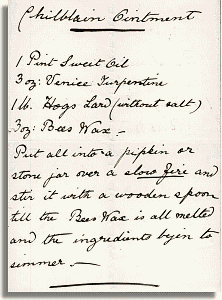 Chilblain Ointment
1 Pint Sweet Oil
3 oz: Venice Turpentine
1 lb. Hogs Lard (without salt)
3 oz: Bees Wax —
Put all into a pipkin or
stone jar over a slow fire and
stir it with a wooden spoon
till the Bees Wax is all melted
and the ingredients begin to
simmer —